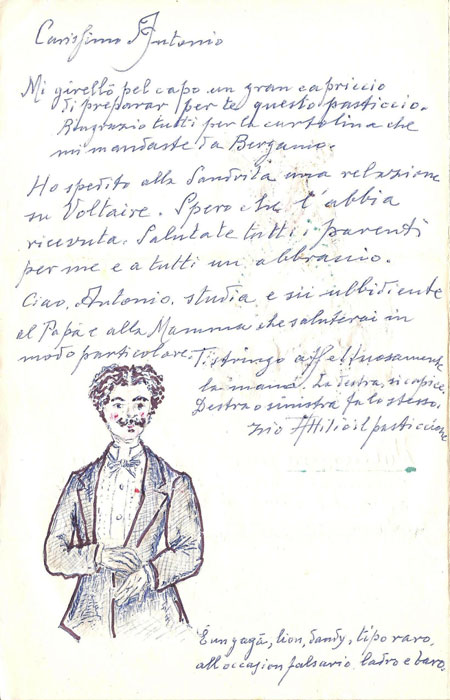 Carissimo Antonio
Mi girellò pel capo un gran capriccio
di preparar per te questo pasticcio.
Ringrazio tutti per la cartolina che
mi mandaste da Bergamo.
Ho spedito alla Sandrità una relazione
su Voltaire. Spero che l'abbia
ricevuta. Salutate tutti i parenti
per me e a tutti un abbraccio.
Ciao, Antonio, studia e sii ubbidiente
al Papà e alla Mamma che saluterai in
modo particolare. Ti stringo affettuosamente
la mano. La destra, si capisce.
Destra o sinistra fa lo stesso.
Zio Attilio il pasticcione
È un gagà, lion, dandy, tipo raro,
all'occasion falsario ladro e baro.